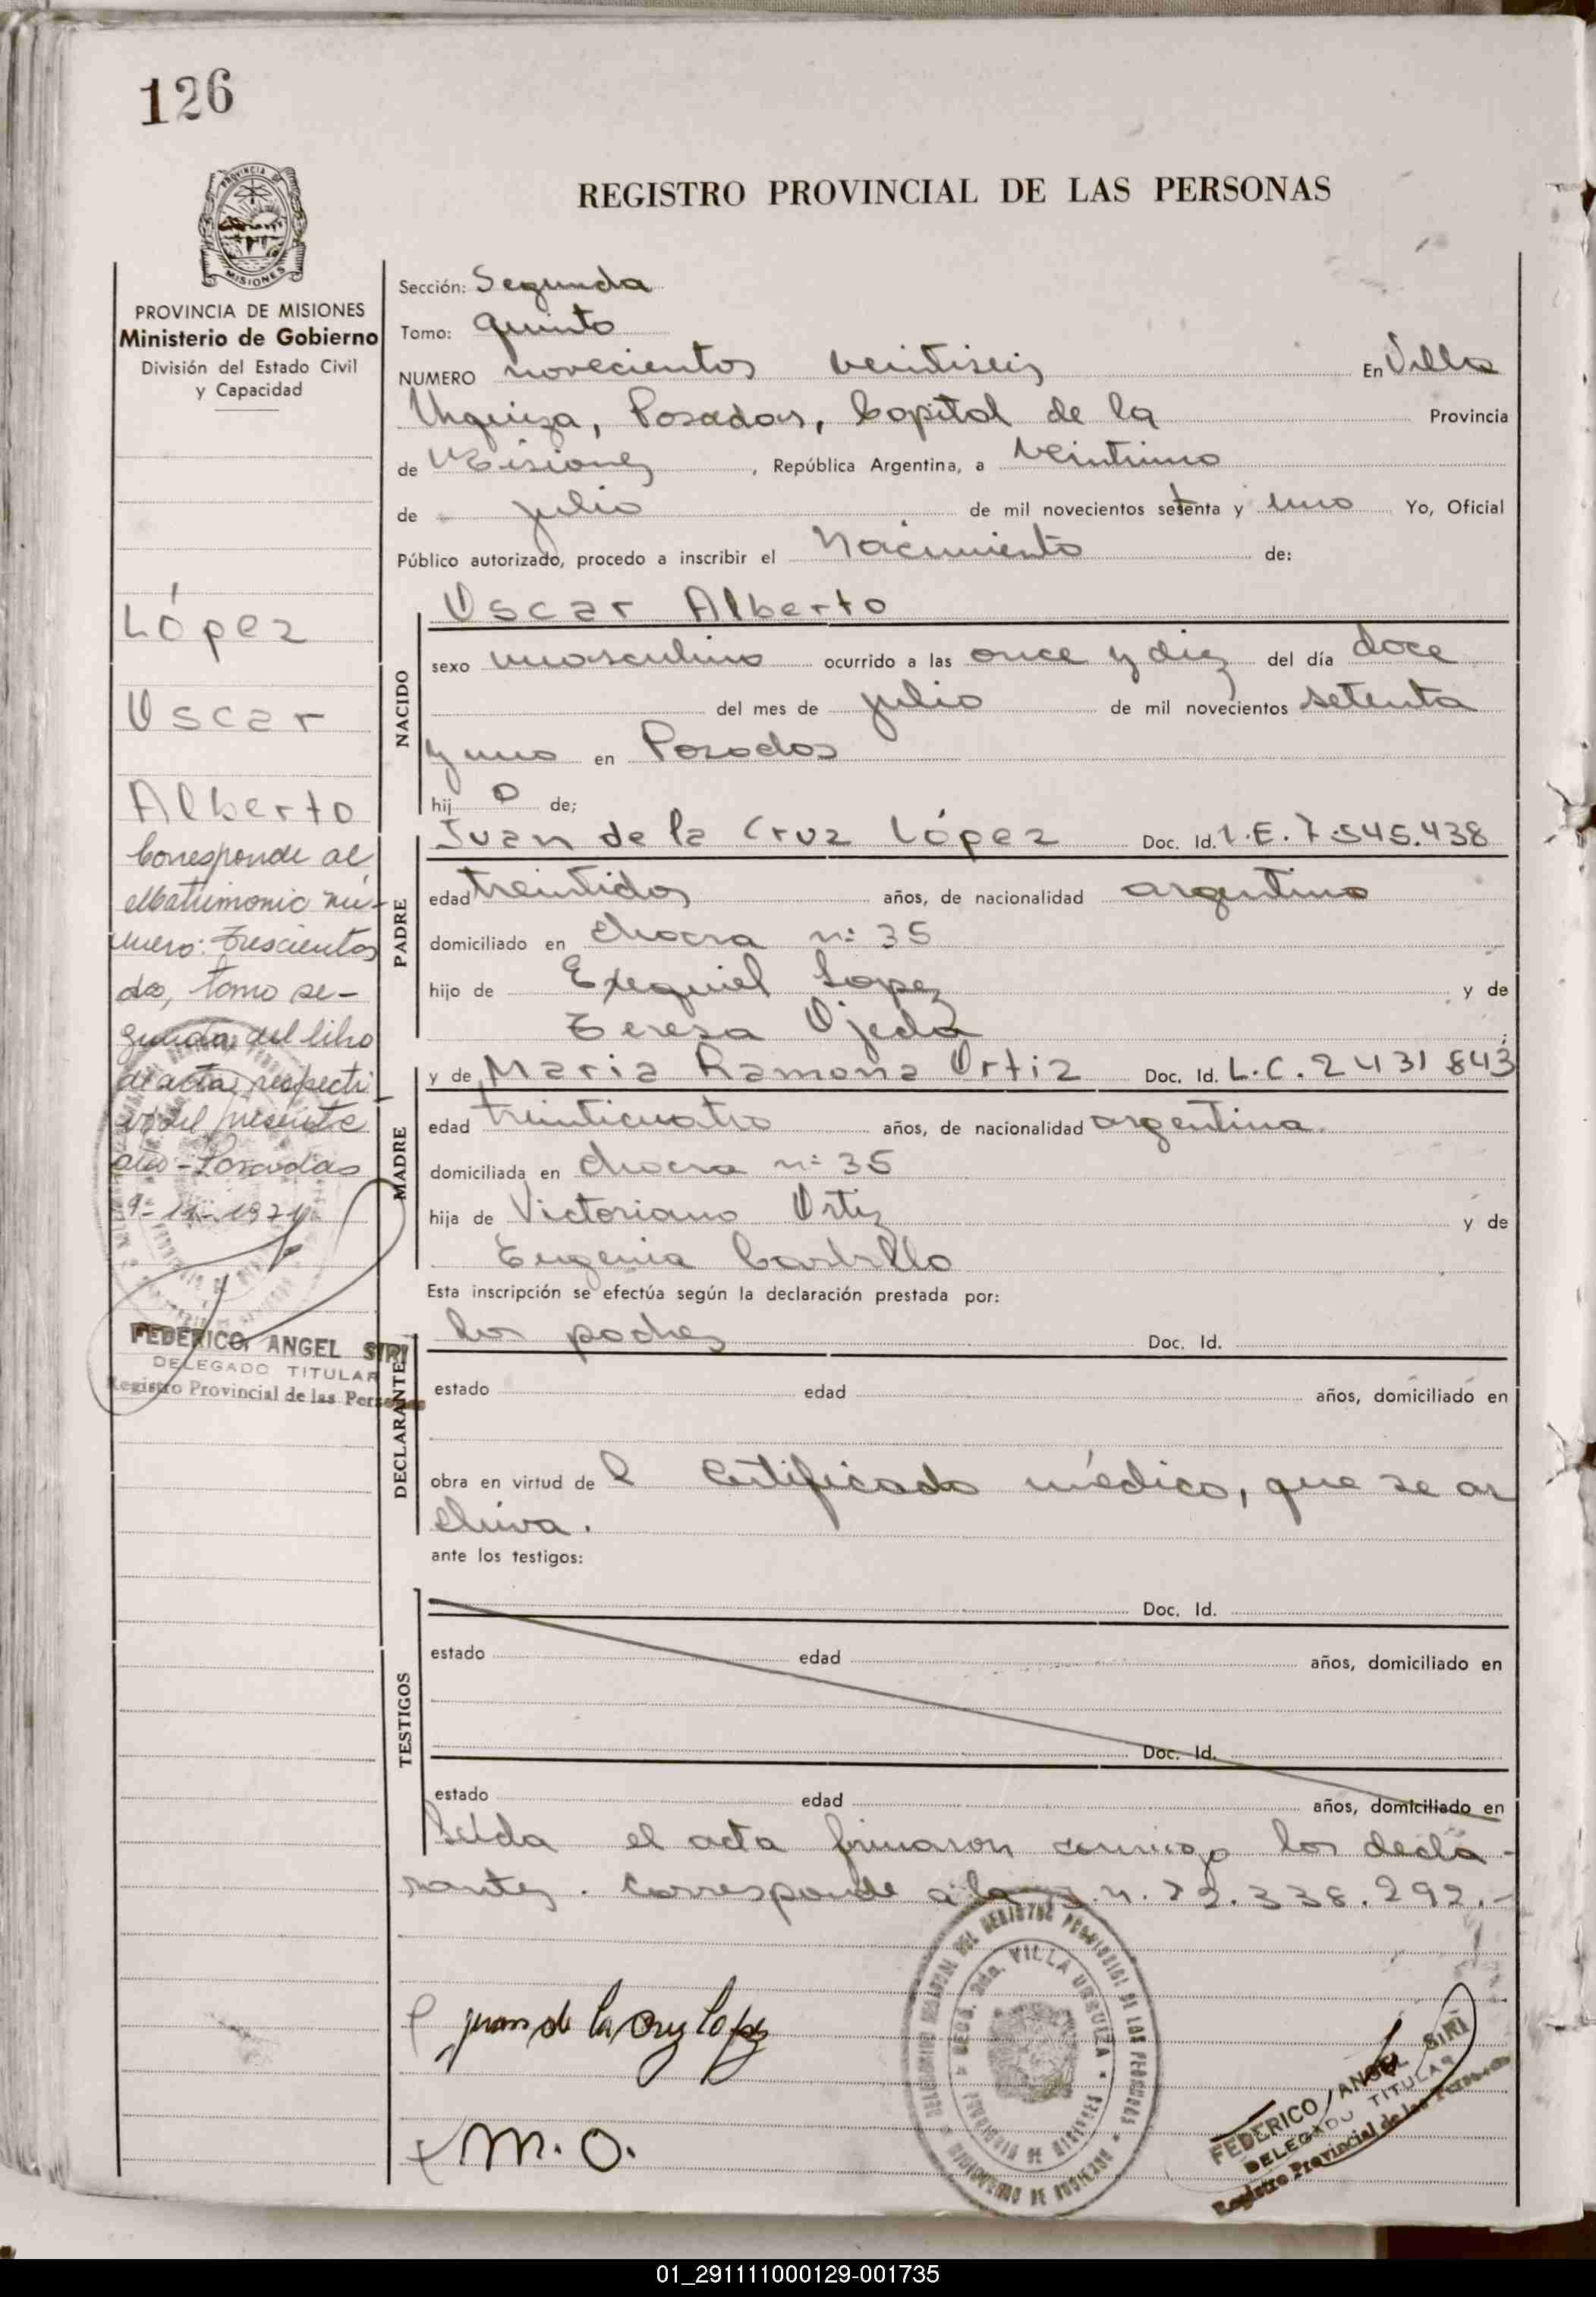 126
PROVINCIA DE
MISIONES
REGISTRO PROVINCIAL DE LAS PERSONAS
PROVINCIA DE MISIONES
Ministerio de Gobierno
División del Estado Civil
y Capacidad
López
Oscar
Alberto
Corresponde al
Matrimonio nú-
mero: Trescientos
dos, tomo se-
gundo del libro
de actas respecti
vo del presente
año - Posadas
9-11-1971
FEDERICO ANGEL SIRI
DELEGADO TITULAR
Registro Provincial de las Personas
Sección: Segunda
Tomo: quinto
NUMERO novecientos veintiseis En Villa
Urquiza, Posadas, Capital de la Provincia
de Misiones, República Argentina, a veintiuno
de julio de mil novecientos setenta y uno Yo, Oficial
Público autorizado, procedo a inscribir el Nacimiento de:
NACIDO
Oscar Alberto
sexo masculino ocurrido a las once y diez del día doce
del mes de julio de mil novecientos setenta
y uno en Posadas
hij o de;
PADRE
Juan de la Cruz López Doc. Id. L.E. 7.545.438
edad treintidos años, de nacionalidad argentino
domiciliado en chacra nº 35
hijo de Exequiel Lopez y de
Teresa Ojeda
MADRE
y de Maria Ramona Ortiz Doc. Id. L.C. 2431843
edad treinticuatro años, de nacionalidad argentina
domiciliada en chacra nº 35
hija de Victoriano Ortiz y de
Eugenia Castillo
Esta inscripción se efectúa según la declaración prestada por:
DECLARANTE
los padres Doc. Id.
estado edad años, domiciliado en
obra en virtud de l certificado médico, que se ar
chiva.
ante los testigos:
TESTIGOS
Doc. Id.
estado edad años, domiciliado en
Doc. Id.
estado edad años, domiciliado en
Leída el acta firmaron conmigo los decla-
rantes. Corresponde a la .n. 22.338.292.-
juan de la Cruz Lopez
M. O.
SECC. 2da. VILLA URQUIZA
PROVINCIA DE MISIONES
FEDERICO ANGEL SIRI
DELEGADO TITULAR
Registro Provincial de las Personas
01_291111000129-001735